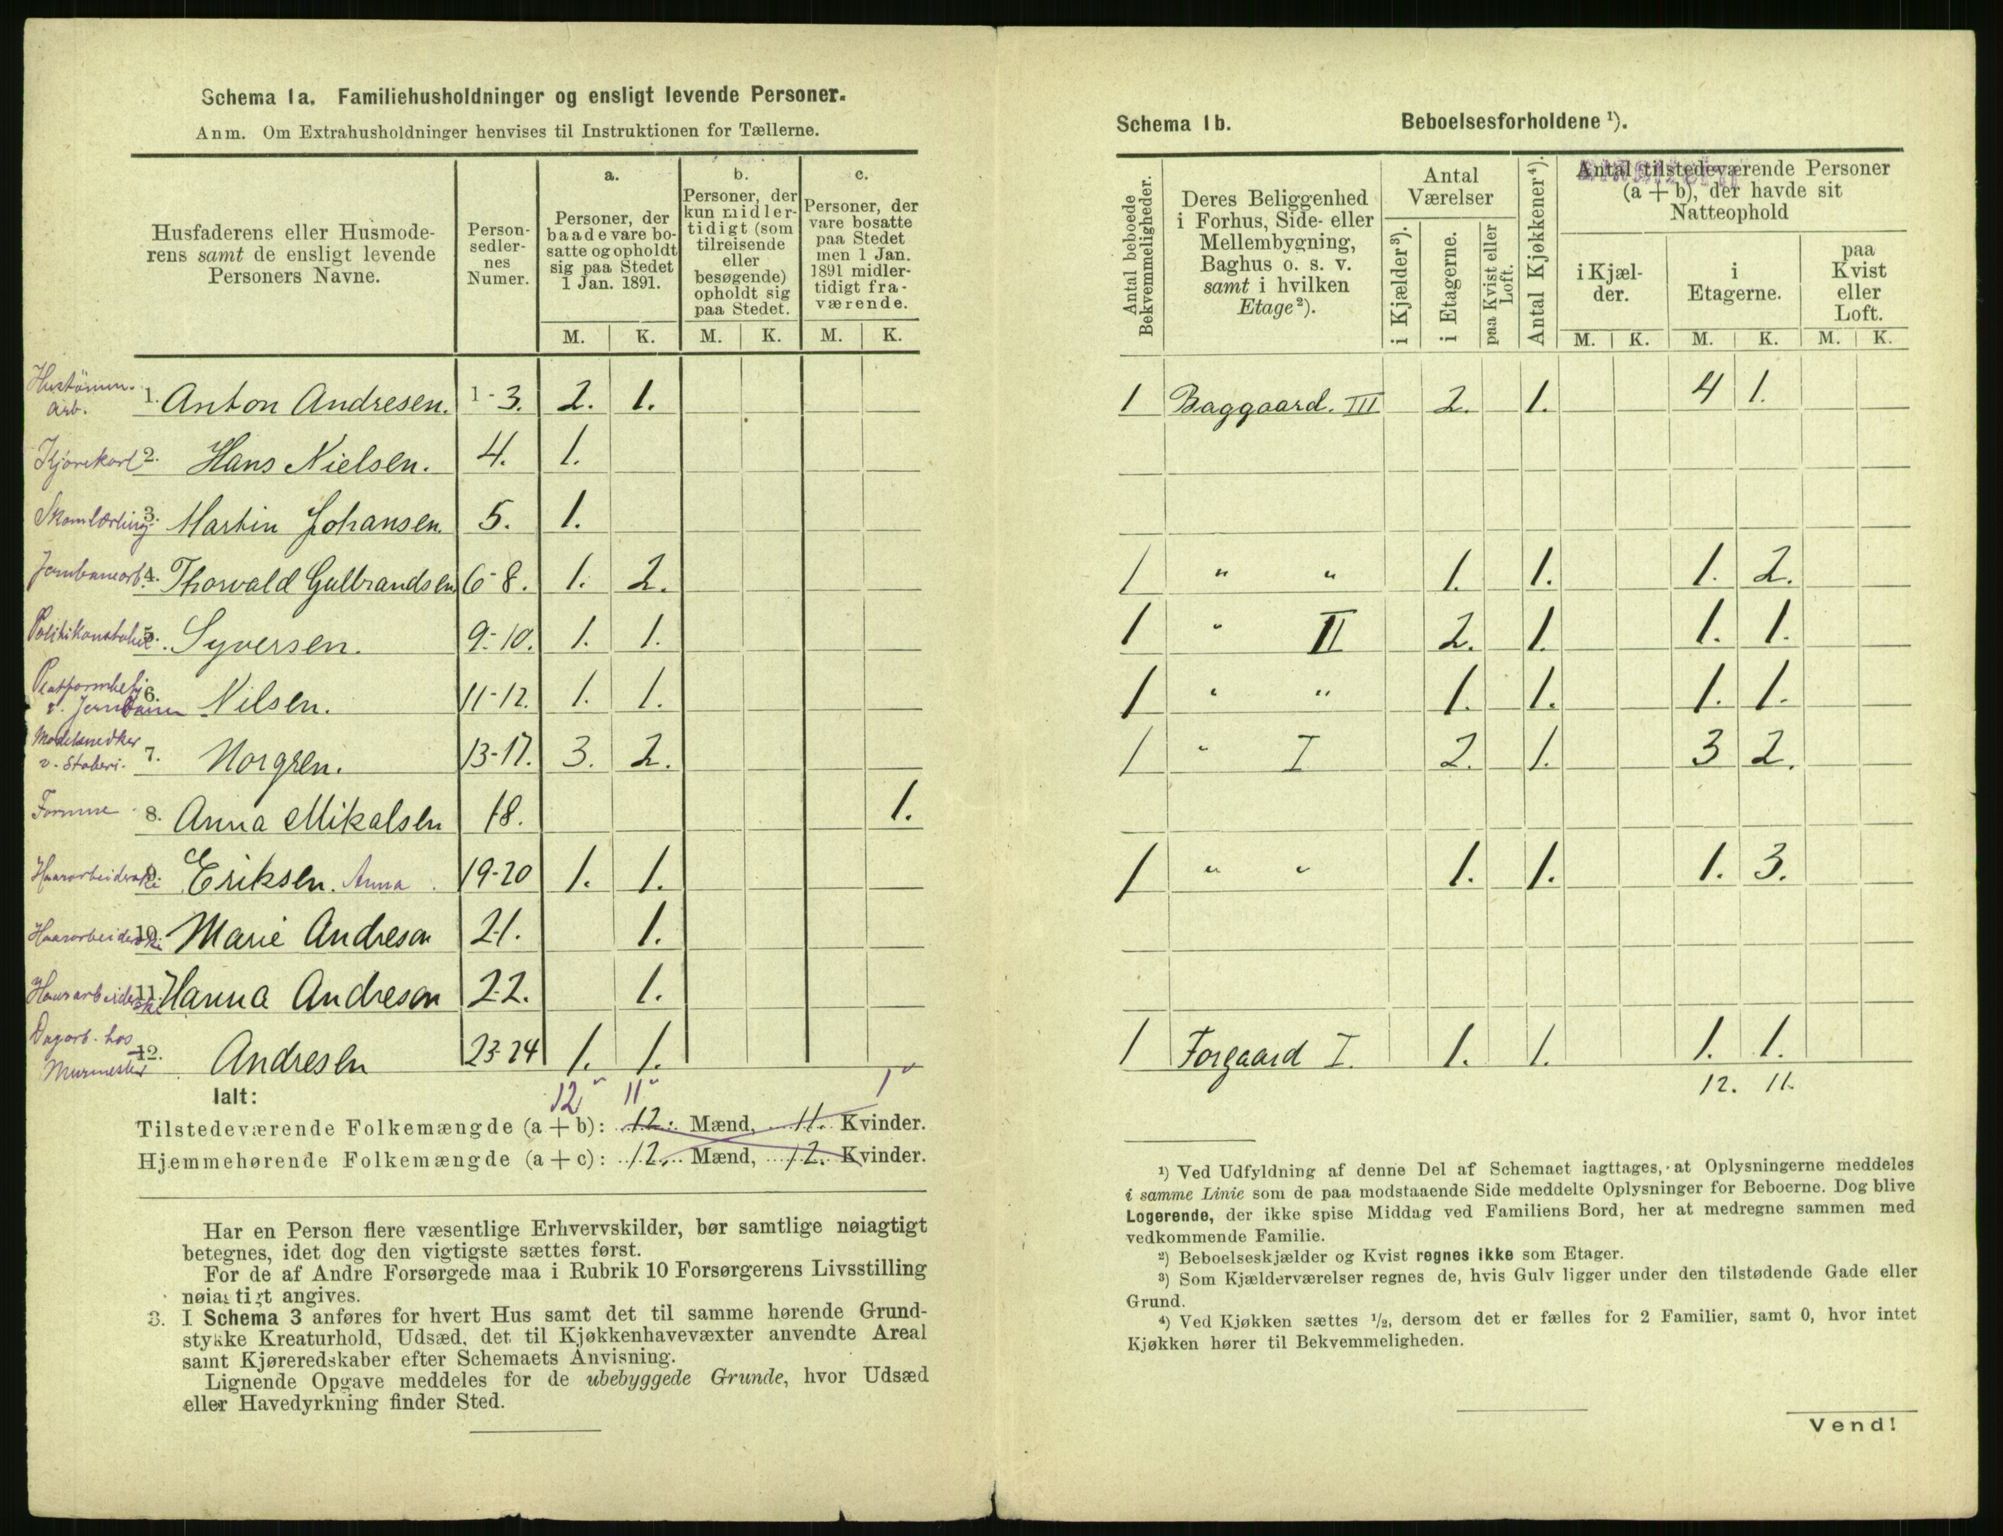 Schema 1a. Familiehusholdninger og ensligt levende Personer.
Anm. Om Extrahusholdninger henvises til Instruktionen for Tællerne.
Husfaderens eller Husmoderens samt de ensligt levende Personers Navne.
Personsedlernes Numer.
a. Personer, der baade vare bosatte og opholdt sig paa Stedet 1 Jan. 1891.
b. Personer, der kun midlertidigt (som tilreisende eller besøgende) opholdt sig paa Stedet.
c. Personer, der vare bosatte paa Stedet men 1 Jan. 1891 midlertidigt fraværende.
M. K. M. K. M. K.
1. Anton Andresen. 1-3. 2. 1.
Kjørekarl 2. Hans Nielsen. 4. 1.
Skomlærling 3. Martin Johansen. 5. 1.
Jernbanearb. 4. Thorvald Gulbrandsen 6-8. 1. 2.
Politikonstabel 5. Syversen. 9-10. 1. 1.
6. Nilsen. 11-12. 1. 1.
Modelsnedker v. Støberi. 7. Norgren. 13-17. 3. 2.
8. Anna Mikalsen 18. 1.
Haararbeiderske 9. Eriksen. Anna. 19-20 1. 1.
Haararbeiderske 10. Marie Andreson 21. 1.
Haararbeiderske 11. Hanna Andreson 22. 1.
Dagarb. hos Murmester 12. Andresen 23-24 1. 1.
Ialt: 12 11 1
Tilstedeværende Folkemængde (a + b): 12. Mænd, 11. Kvinder.
Hjemmehørende Folkemængde (a + c): 12. Mænd, 12. Kvinder.
Har en Person flere væsentlige Erhvervskilder, bør samtlige nøiagtigt
betegnes, idet dog den vigtigste sættes først.
For de af Andre Forsørgede maa i Rubrik 10 Forsørgerens Livsstilling
nøiagtigt angives.
3. I Schema 3 anføres for hvert Hus samt det til samme hørende Grund-
stykke Kreaturhold, Udsæd, det til Kjøkkenhavevæxter anvendte Areal
samt Kjøreredskaber efter Schemaets Anvisning.
Lignende Opgave meddeles for de ubebyggede Grunde, hvor Udsæd
eller Havedyrkning finder Sted.
Schema 1b. Beboelsesforholdene ¹).
Antal beboede Bekvemmeligheder.
Deres Beliggenhed i Forhus, Side- eller Mellembygning, Baghus o. s. v. samt i hvilken Etage ²).
Antal Værelser
i Kjælder ³).
i Etagerne.
paa Kvist eller Loft.
Antal Kjøkkener ⁴).
Antal tilstedeværende Personer (a + b), der havde sit Natteophold
i Kjælder.
i Etagerne.
paa Kvist eller Loft.
M. K. M. K. M. K.
1 Baggaard. III 2. 1. 4 1.
1 " " 1. 1. 1. 2.
1 " II 2. 1. 1. 1.
1 " " 1. 1. 1. 1.
1 " I 2. 1. 3 2.
1 " " 1. 1. 1. 3.
1 Forgaard I. 1. 1. 1. 1.
12. 11.
¹) Ved Udfyldning af denne Del af Schemaet iagttages, at Oplysningerne meddeles
i samme Linie som de paa modstaaende Side meddelte Oplysninger for Beboerne. Dog blive
Logerende, der ikke spise Middag ved Familiens Bord, her at medregne sammen med
vedkommende Familie.
²) Beboelseskjælder og Kvist regnes ikke som Etager.
³) Som Kjælderværelser regnes de, hvis Gulv ligger under den tilstødende Gade eller
Grund.
⁴) Ved Kjøkken sættes ½, dersom det er fælles for 2 Familier, samt 0, hvor intet
Kjøkken hører til Bekvemmeligheden.
Vend!